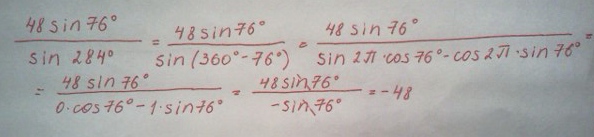 48 sin 76° / sin 284° = 48 sin 76° / sin (360° - 76°) = 48 sin 76° / sin 2π · cos 76° - cos 2π · sin 76° =
= 48 sin 76° / 0 · cos 76° - 1 · sin 76° = 48 sin 76° / - sin 76° = -48